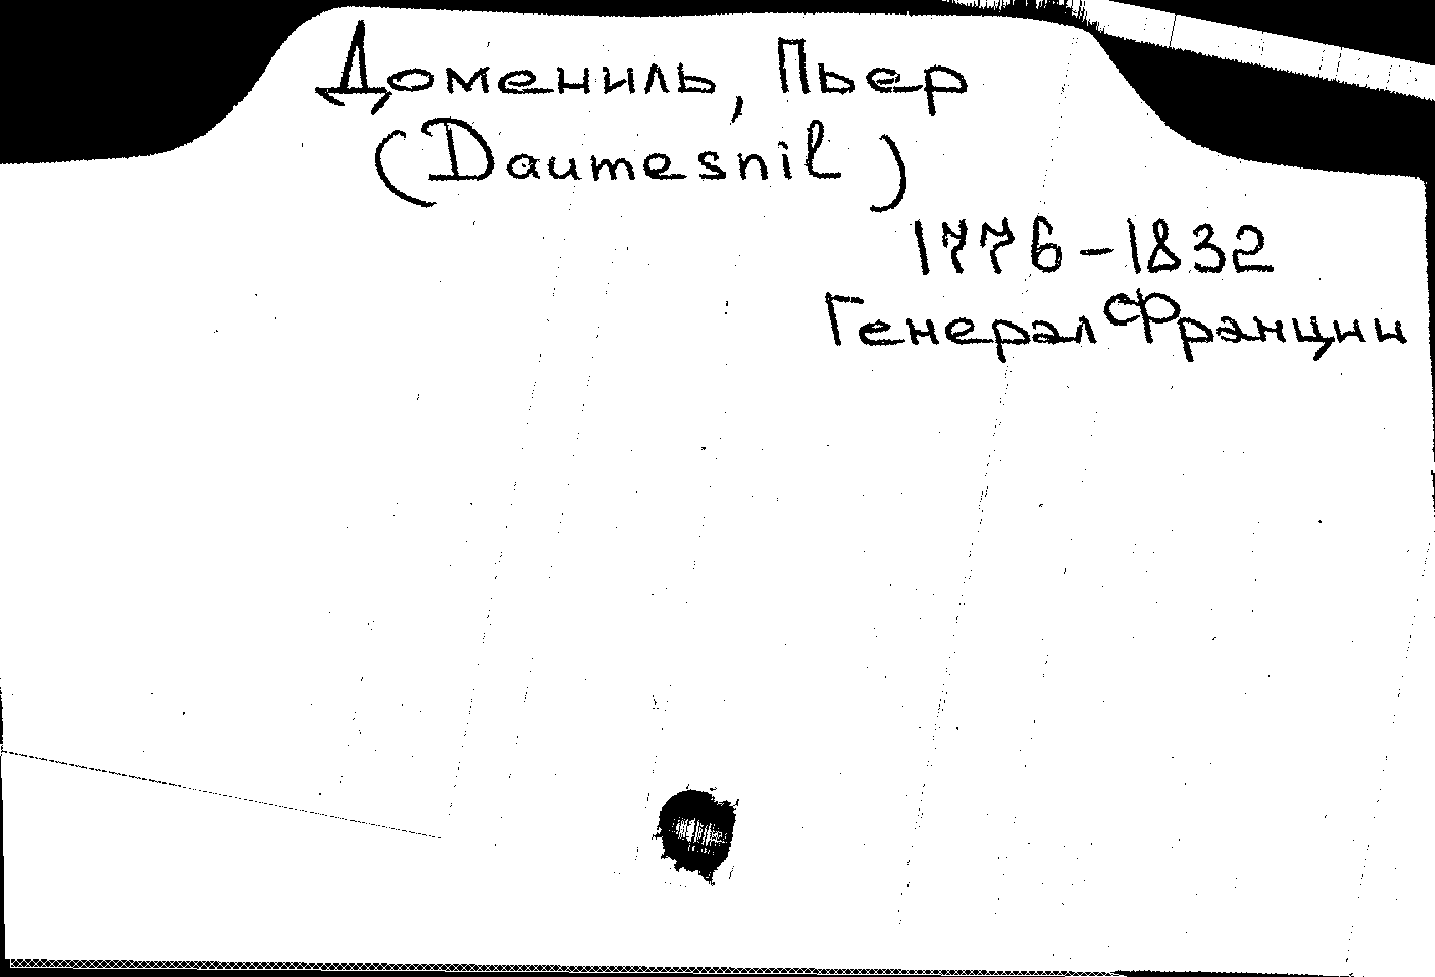 Домениль, Пьер
(Daumesnil)
1776-1832
Генерал Франции